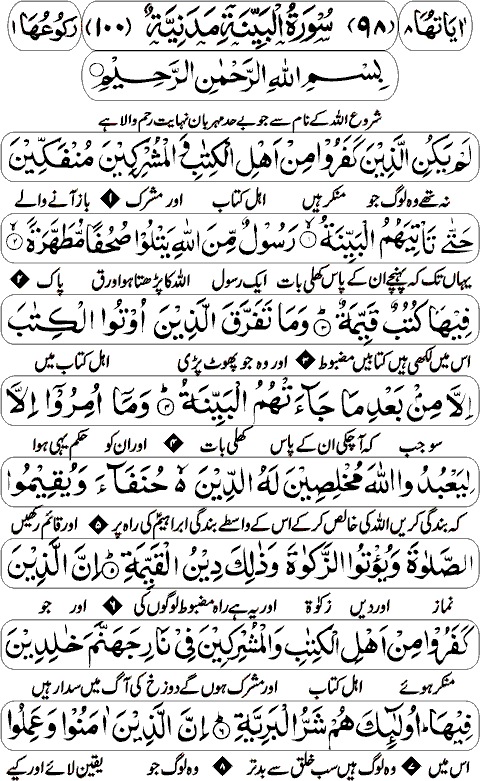 اٰيَاتُهَا ٨ (٩٨) سُوْرَةُ الْبَيِّنَةِ مَدَنِيَّةٌ (١٠٠) رُكُوْعُهَا ١
بِسْمِ اللهِ الرَّحْمٰنِ الرَّحِيْمِ
شروع اللہ کے نام سے جو بے حد مہربان نہایت رحم والا ہے
لَمْ يَكُنِ الَّذِيْنَ كَفَرُوْا مِنْ اَهْلِ الْكِتٰبِ وَالْمُشْرِكِيْنَ مُنْفَكِّيْنَ
نہ تھے وہ لوگ جو منکر ہیں اہل کتاب ۱ اور مشرک باز آنے والے
حَتّٰى تَاْتِيَهُمُ الْبَيِّنَةُ ١ رَسُوْلٌ مِّنَ اللهِ يَتْلُوْا صُحُفًا مُّطَهَّرَةً ٢
یہاں تک کہ پہنچے ان کے پاس کھلی بات ایک رسول اللہ کا پڑھتا ہوا ورق پاک ۲
فِيْهَا كُتُبٌ قَيِّمَةٌ ٣ وَمَا تَفَرَّقَ الَّذِيْنَ اُوْتُوا الْكِتٰبَ
اس میں لکھی ہیں کتابیں مضبوط ۳ اور وہ جو پھوٹ پڑی اہل کتاب میں
اِلَّا مِنْۢ بَعْدِ مَا جَآءَتْهُمُ الْبَيِّنَةُ ٤ وَمَآ اُمِرُوْٓا اِلَّا
سو جب کہ آچکی ان کے پاس کھلی بات ۴ اور ان کو حکم یہی ہوا
لِيَعْبُدُوا اللهَ مُخْلِصِيْنَ لَهُ الدِّيْنَ ۵ حُنَفَآءَ وَيُقِيْمُوا
کہ بندگی کریں اللہ کی خالص کر کے اس کے واسطے بندگی ابراہیمؑ کی راہ پر ۵ اور قائم رکھیں
الصَّلٰوةَ وَيُؤْتُوا الزَّكٰوةَ وَذٰلِكَ دِيْنُ الْقَيِّمَةِ ٥ اِنَّ الَّذِيْنَ
نماز اور دیں زکوٰۃ اور یہ ہے راہ مضبوط لوگوں کی ۶ اور جو
كَفَرُوْا مِنْ اَهْلِ الْكِتٰبِ وَالْمُشْرِكِيْنَ فِيْ نَارِ جَهَنَّمَ خٰلِدِيْنَ
منکر ہوئے اہل کتاب اور مشرک ہوں گے دوزخ کی آگ میں سدا رہیں
فِيْهَا اُولٰٓئِكَ هُمْ شَرُّ الْبَرِيَّةِ ٦ اِنَّ الَّذِيْنَ اٰمَنُوْا وَعَمِلُوا
اس میں ۷ وہ لوگ ہیں سب خلق سے بدتر ۸ وہ لوگ جو یقین لائے اور کیے